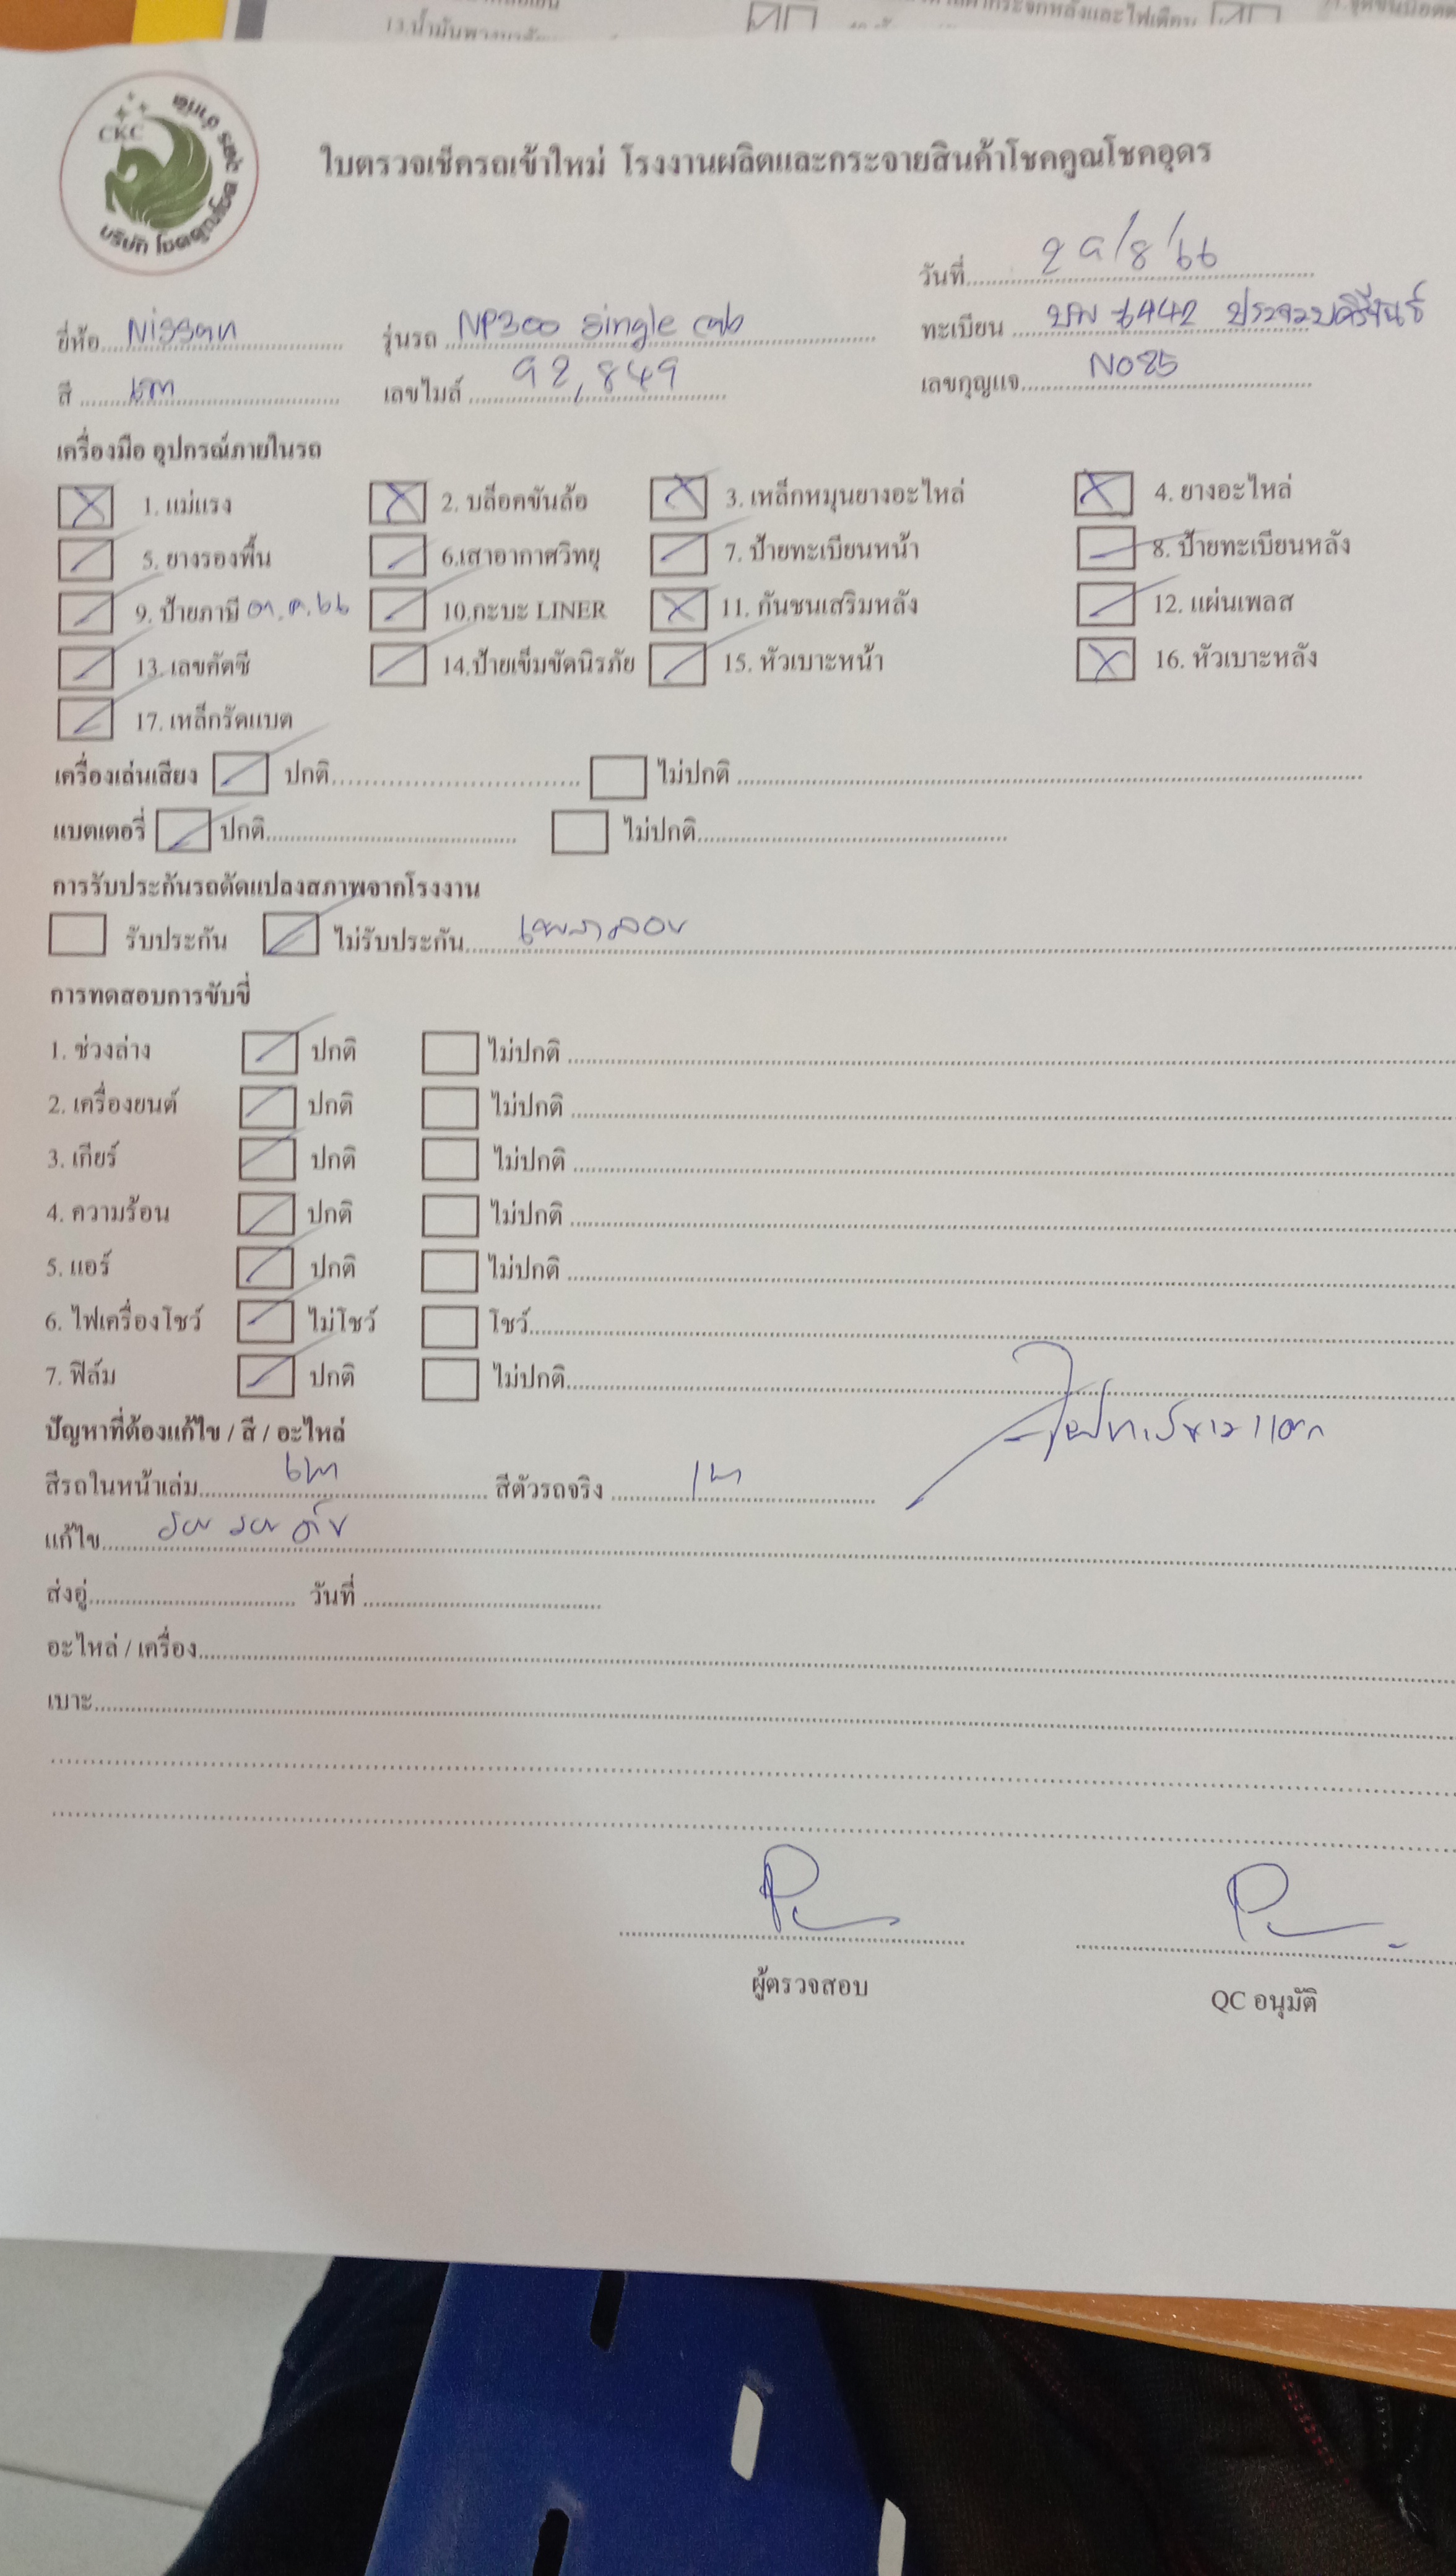 CKC
บริษัท โชคคูณโชค
ใบตรวจเช็ครถเข้าใหม่ โรงงานผลิตและกระจายสินค้าโชคคูณโชคอุดร
วันที่ 29/8/66
ยี่ห้อ Nissan รุ่นรถ NP300 single cab ทะเบียน
สี เทา เลขไมล์ 92,849 เลขกุญแจ NO85
เครื่องมือ อุปกรณ์ภายในรถ
1. แม่แรง 2. บล็อคขันล้อ 3. เหล็กหมุนยางอะไหล่ 4. ยางอะไหล่
5. ยางรองพื้น 6.เสาอากาศวิทยุ 7. ป้ายทะเบียนหน้า 8. ป้ายทะเบียนหลัง
9. ป้ายภามี 10.กะบะ LINER 11. กันชนเสริมหลัง 12. แผ่นเพลส
13. เลขคัดซี 14.ป้ายเข็มขัดนิรภัย 15. หัวเบาะหน้า 16. หัวเบาะหลัง
17. เหล็กรัดแบต
เครื่องเล่นเสียง ปกติ ไม่ปกติ
แบตเตอรี่ ปกติ ไม่ปกติ
การรับประกันรถดัดแปลงสภาพจากโรงงาน
รับประกัน ไม่รับประกัน
การทดสอบการขับขี่
1. ช่วงล่าง ปกติ ไม่ปกติ
2. เครื่องยนต์ ปกติ ไม่ปกติ
3. เกียร์ ปกติ ไม่ปกติ
4. ความร้อน ปกติ ไม่ปกติ
5. แอร์ ปกติ ไม่ปกติ
6. ไฟเครื่องโชว์ ไม่โชว์ โชว์
7. ฟิล์ม ปกติ ไม่ปกติ
ปัญหาที่ต้องแก้ไข / สี / อะไหล่
สีรถในหน้าเล่ม เทา สีตัวรถจริง เทา
แก้ไข
ส่งอู่ วันที่
อะไหล่ / เครื่อง
เบาะ
ผู้ตรวจสอบ QC อนุมัติ